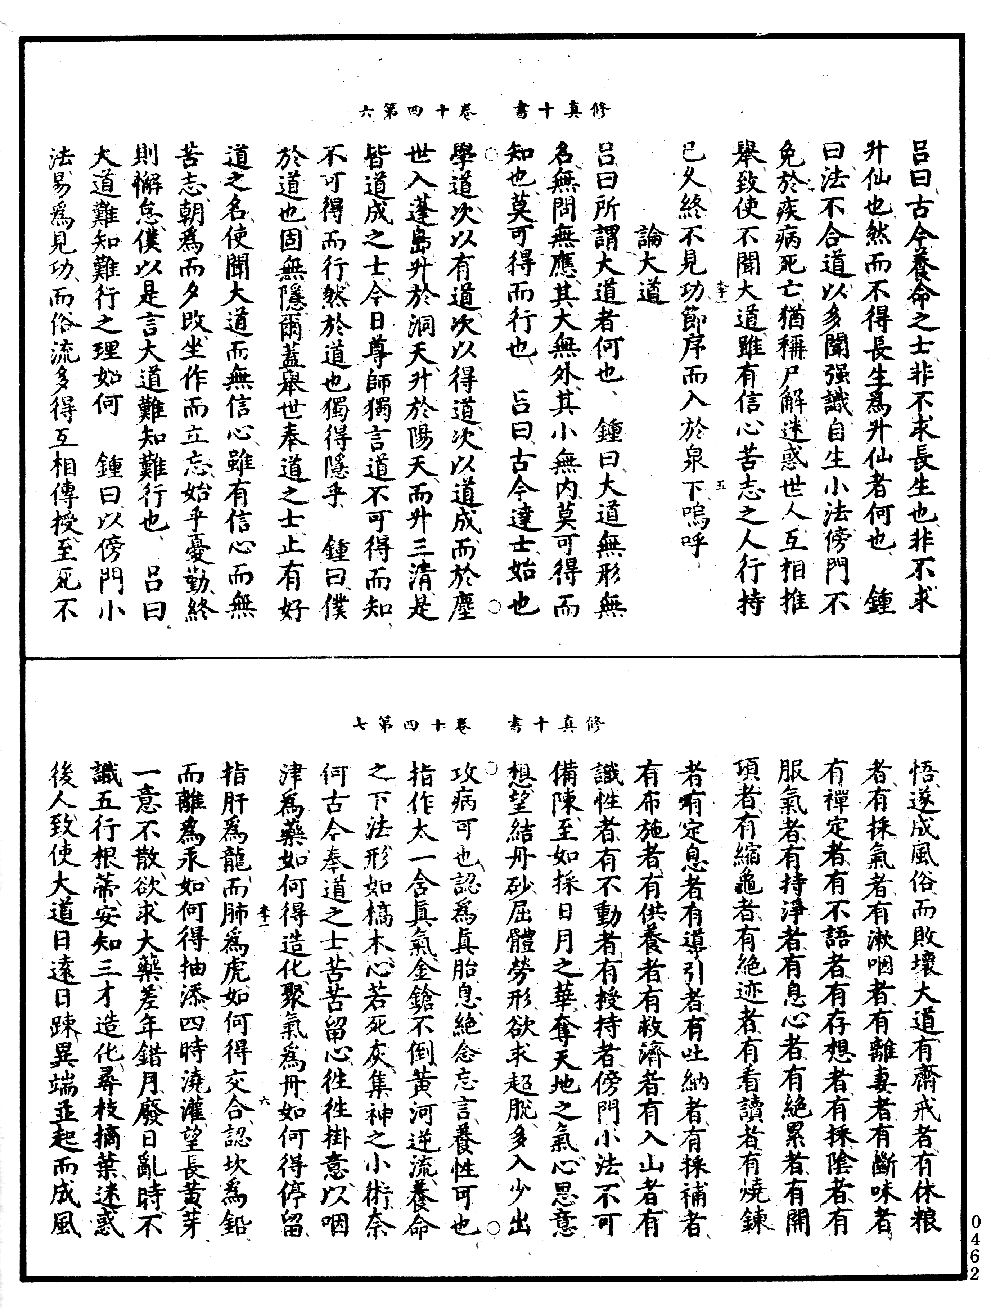 修真十書　卷十四第六
呂曰古今養命之士非不求長生也非不求
升仙也然而不得長生爲升仙者何也　鍾
曰法不合道以多聞强識自生小法傍門不
免於疾病死亡猶稱尸解迷惑世人互相推
舉致使不聞大道雖有信心苦志之人行持
已久終不見功節序而入於泉下嗚呼
李一　五
論大道
呂曰所謂大道者何也　鍾曰大道無形無
名無問無應其大無外其小無内莫可得而
知也莫可得而行也　呂曰古今達士始也
學道次以有道次以得道次以道成而於塵
世入蓬島升於洞天升於陽天而升三清是
皆道成之士今日尊師獨言道不可得而知
不可得而行然於道也獨得隱乎　鍾曰僕
於道也固無隱爾蓋舉世奉道之士止有好
道之名使聞大道而無信心雖有信心而無
苦志朝爲而夕改坐作而立忘始乎憂勤終
則懈怠僕以是言大道難知難行也　呂曰
大道難知難行之理如何　鍾曰以傍門小
法易爲見功而俗流多得互相傳授至死不
修真十書　卷十四第七
悟遂成風俗而敗壞大道有齋戒者有休粮
者有採氣者有漱咽者有離妻者有斷味者
有禪定者有不語者有存想者有採陰者有
服氣者有持淨者有息心者有絶累者有開
項者有縮龜者有絶迹者有看讀者有燒鍊
者有定息者有導引者有吐納者有採補者
有布施者有供養者有救濟者有入山者有
識性者有不動者有授持者傍門小法不可
備陳至如採日月之華奪天地之氣心思意
想望結丹砂屈體勞形欲求超脱多入少出
攻病可也認爲眞胎息絶念忘言養性可也
指作太一含眞氣金鎗不倒黄河逆流養命
之下法形如槁木心若死灰集神之小術奈
何古今奉道之士苦苦留心往往掛意以咽
津爲藥如何得造化聚氣爲丹如何得停留
李一　六
指肝爲龍而肺爲虎如何得交合認坎爲鉛
而離爲汞如何得抽添四時澆灌望長黄芽
一意不散欲求大藥差年錯月廢日亂時不
識五行根蒂安知三才造化尋枝摘葉迷惑
後人致使大道日遠日踈異端並起而成風
0462